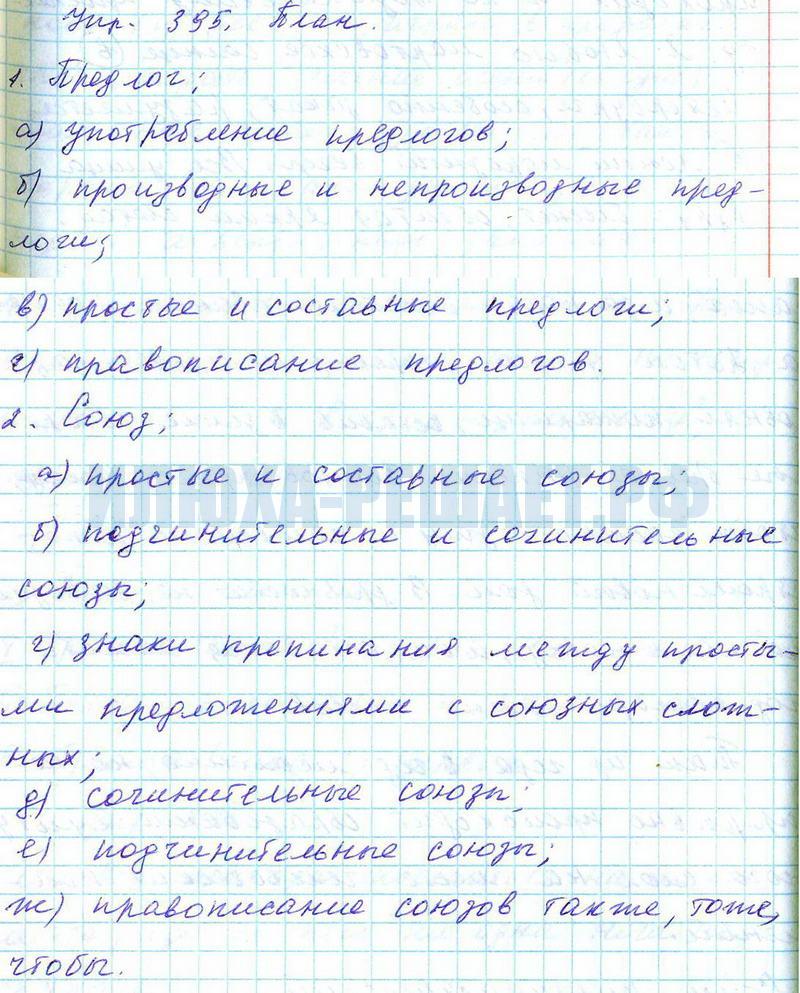 Упр. 395. План.
1. Предлог;
а) употребление предлогов;
б) производные и непроизводные пред-
логи;
в) простые и составные предлоги;
г) правописание предлогов.
2. Союз;
а) простые и составные союзы;
ИЛЮХА-РЕШАЕТ.РФ
б) подчинительные и сочинительные
союзы;
г) знаки препинания между просты-
ми предложениями с союзных слож-
ных;
д) сочинительные союзы;
е) подчинительные союзы;
ж) правописание союзов также, тоже,
чтобы.